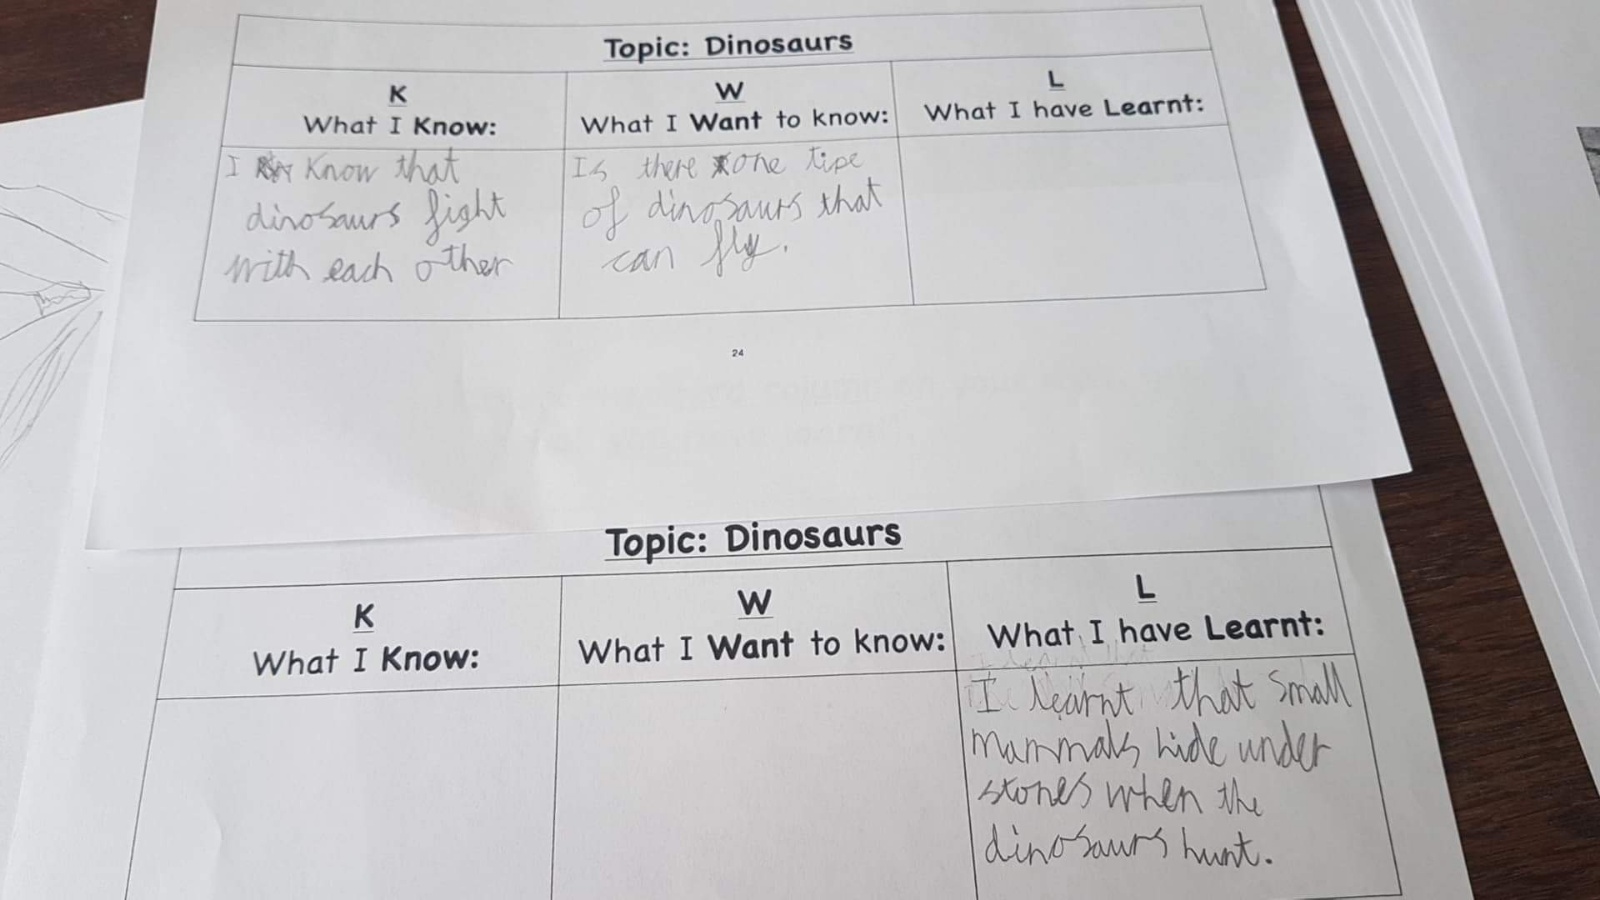 Topic: Dinosaurs
K
What I Know:
W
What I Want to know:
L
What I have Learnt:
I Know that
dinosaurs fight
with each other
Is there one tipe
of dinosaurs that
can fly.
24
Topic: Dinosaurs
K
What I Know:
W
What I Want to know:
L
What I have Learnt:
I learnt that small
mammals hide under
stones when the
dinosaurs hunt.